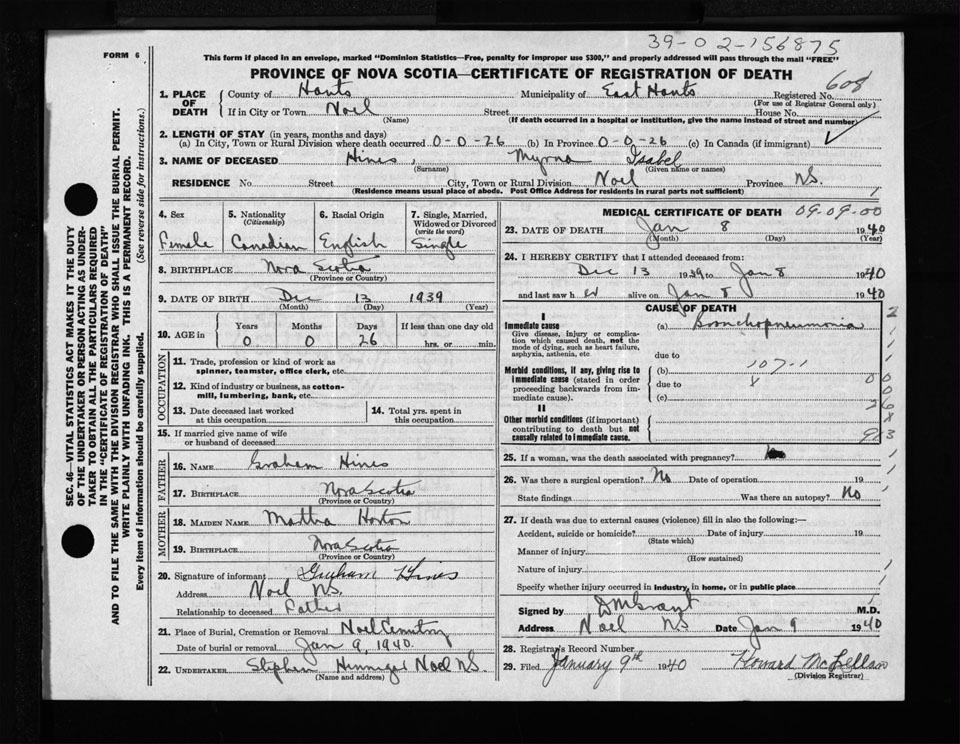 39-02-156875
FORM 6
This form if placed in an envelope, marked "Dominion Statistics—Free, penalty for improper use $300," and properly addressed will pass through the mail "FREE"
PROVINCE OF NOVA SCOTIA—CERTIFICATE OF REGISTRATION OF DEATH
608
1. PLACE OF DEATH
County of Hants Municipality of East Hants Registered No.
(For use of Registrar General only)
If in City or Town Noel Street House No.
(Name) (If death occurred in a hospital or institution, give the name instead of street and number)
2. LENGTH OF STAY (in years, months and days)
(a) In City, Town or Rural Division where death occurred 0-0-26 (b) In Province 0-0-26 (c) In Canada (if immigrant)
3. NAME OF DECEASED Hines, Myrna Isabel
(Surname) (Given name or names)
RESIDENCE No. Street City, Town or Rural Division Noel Province N.S.
(Residence means usual place of abode. Post Office Address for residents in rural parts not sufficient)
SEC. 46—VITAL STATISTICS ACT MAKES IT THE DUTY
OF THE UNDERTAKER OR PERSON ACTING AS UNDER-
TAKER TO OBTAIN ALL THE PARTICULARS REQUIRED
IN THE "CERTIFICATE OF REGISTRATION OF DEATH"
AND TO FILE THE SAME WITH THE DIVISION REGISTRAR WHO SHALL ISSUE THE BURIAL PERMIT.
WRITE PLAINLY WITH UNFADING INK. THIS IS A PERMANENT RECORD.
Every item of information should be carefully supplied. (See reverse side for instructions.)
4. Sex 5. Nationality (Citizenship) 6. Racial Origin 7. Single, Married, Widowed or Divorced (write the word)
Female Canadian English Single
8. BIRTHPLACE Nova Scotia
(Province or Country)
9. DATE OF BIRTH Dec 13 1939
(Month) (Day) (Year)
10. AGE in Years Months Days If less than one day old
0 0 26 hrs. or min.
OCCUPATION
11. Trade, profession or kind of work as spinner, teamster, office clerk, etc.
12. Kind of industry or business, as cotton-mill, lumbering, bank, etc.
13. Date deceased last worked at this occupation
14. Total yrs. spent in this occupation
15. If married give name of wife or husband of deceased
FATHER
16. NAME Graham Hines
17. BIRTHPLACE Nova Scotia
(Province or Country)
MOTHER
18. MAIDEN NAME Martha Horton
19. BIRTHPLACE Nova Scotia
(Province or Country)
20. Signature of informant Graham Hines
Address Noel N.S.
Relationship to deceased Father
21. Place of Burial, Cremation or Removal Noel Cemetery
Date of burial or removal Jan 9, 1940.
22. UNDERTAKER Stephen Hennigar Noel N.S.
(Name and address)
MEDICAL CERTIFICATE OF DEATH 09-09-00
23. DATE OF DEATH Jan 8 1940
(Month) (Day) (Year)
24. I HEREBY CERTIFY that I attended deceased from:
Dec 13 1939 to Jan 8 1940
and last saw her alive on Jan 8 1940
CAUSE OF DEATH
I
Immediate cause (a) Bronchopneumonia
Give disease, injury or complication which caused death, not the mode of dying, such as heart failure, asphyxia, asthenia, etc
due to
Morbid conditions, if any, giving rise to immediate cause (stated in order proceeding backwards from immediate cause).
(b) 107-1
due to
(c)
II
Other morbid conditions (if important) contributing to death but not causally related to immediate cause.
25. If a woman, was the death associated with pregnancy?
26. Was there a surgical operation? No Date of operation 19
State findings Was there an autopsy? No
27. If death was due to external causes (violence) fill in also the following:—
Accident, suicide or homicide? Date of injury 19
(State which)
Manner of injury
(How sustained)
Nature of injury
Specify whether injury occurred in industry, in home, or in public place
Signed by D M Grant M.D.
Address Noel NS Date Jan 9 1940
28. Registrar's Record Number
29. Filed January 9th 1940 Howard McLellan
(Division Registrar)